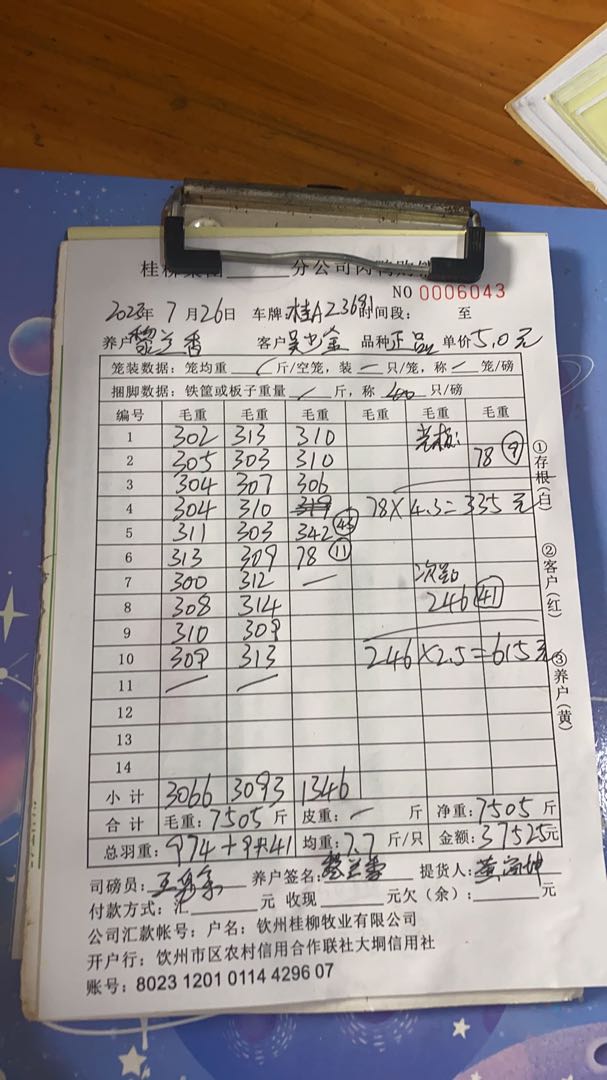 桂柳集团 分公司肉鸭购销
NO 0006043
2023年 7月26日 车牌:桂A236 时间段: 至
养户 黎兰香 客户 品种 正品 单价 5.0元
笼装数据:笼均重 / 斤/空笼,装 一 只/笼,称 一 笼/磅
捆脚数据:铁筐或板子重量 / 斤,称 只/磅
编号 毛重 毛重 毛重 毛重 毛重 毛重
1 302 313 310 光板:
2 305 303 310 78 ⑨
3 304 307 306
4 304 310 78×4.3=335元
5 311 303 342
6 313 309 78 ⑪
7 300 312 —
8 308 314 246 ㊶
9 310 309
10 309 313 246×2.5=615元
11 — —
12
13
14
小计 3066 3093 1346
合计 毛重:7505斤 皮重:一 斤 净重:7505斤
总羽重:974+9+41 均重:7.7斤/只 金额:37525元
司磅员: 养户签名:黎兰香 提货人:
付款方式:汇 元 收现 元欠(余): 元
公司汇款帐号:户名:钦州桂柳牧业有限公司
开户行:钦州市区农村信用合作联社大垌信用社
账号:8023 1201 0114 4296 07
①存根(白)
②客户(红)
③养户(黄)